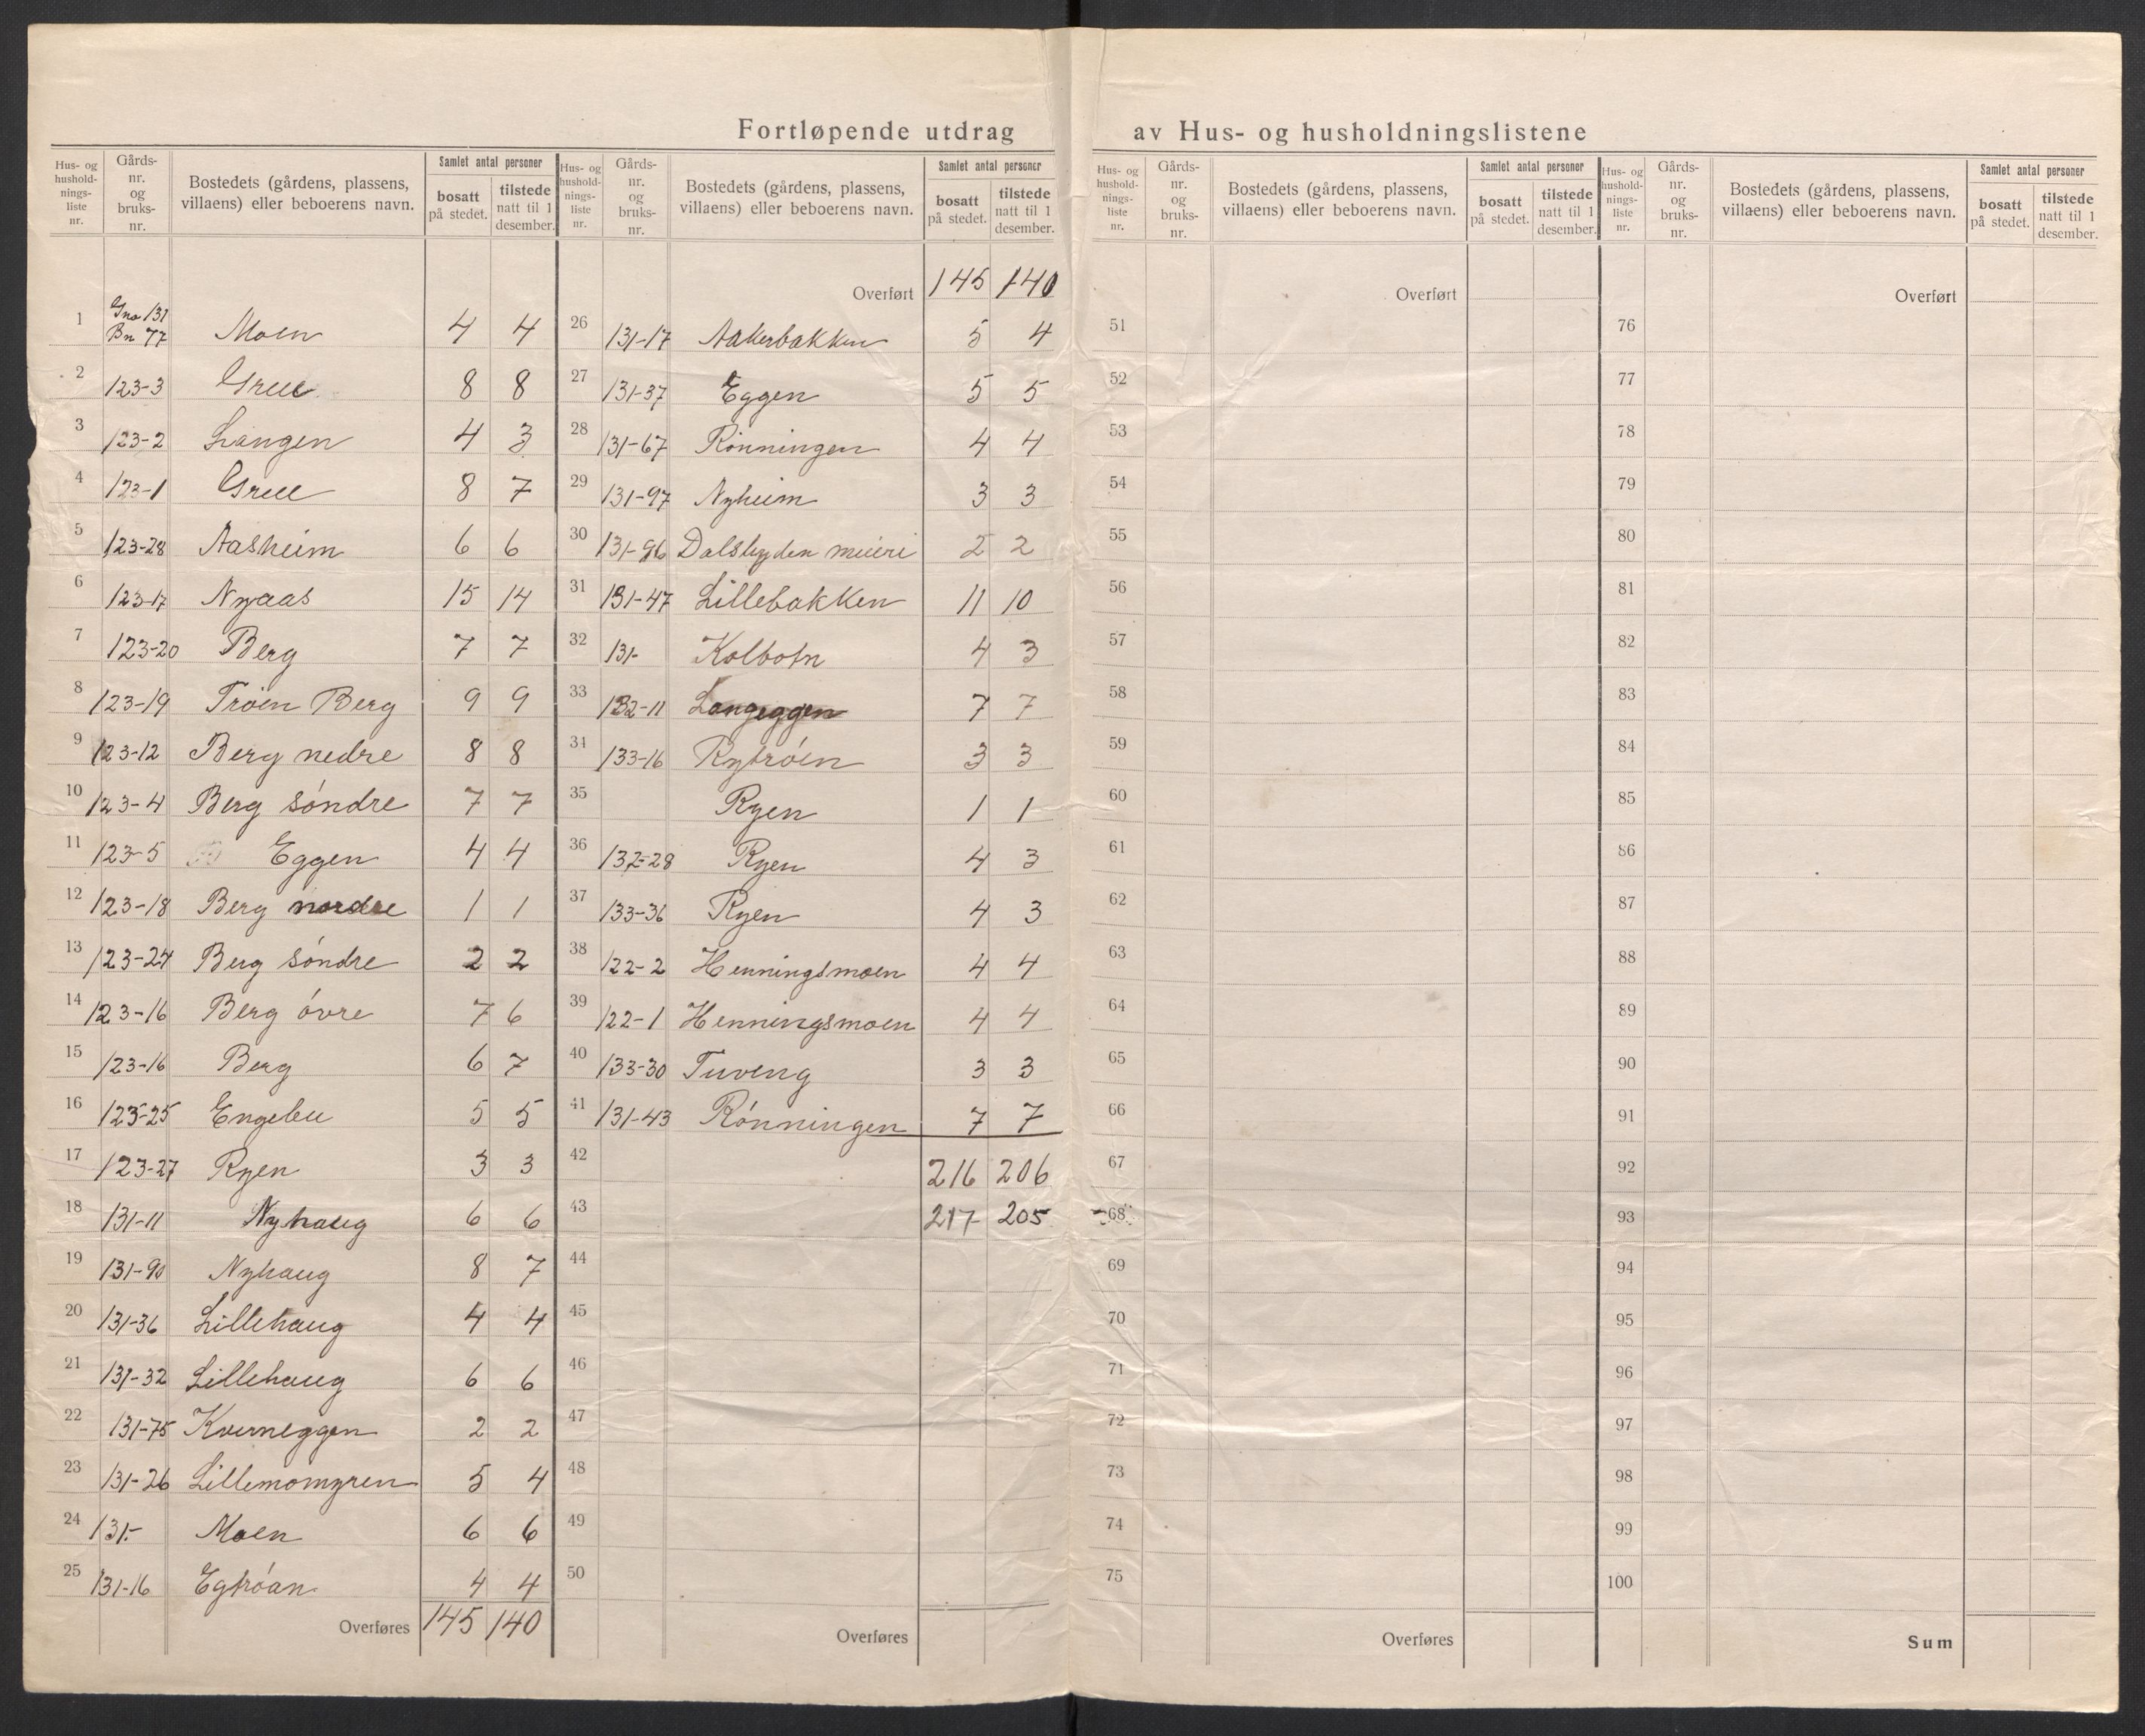 Fortløpende utdrag av Hus- og husholdningslistene
Hus- og husholdningsliste nr. Gårds-nr. og bruks-nr. Bostedets (gårdens, plassens, villaens) eller beboerens navn. Samlet antal personer bosatt på stedet. tilstede natt til 1 desember.
1 Gno 131 Bn 77 Moen 4 4
2 123-3 Grue 8 8
3 123-2 Langen 4 3
4 123-1 Grue 8 7
5 123-28 Aasheim 6 6
6 123-17 Nyaas 15 14
7 123-20 Berg 7 7
8 123-19 Trøen Berg 9 9
9 123-12 Berg nedre 8 8
10 123-4 Berg søndre 7 7
11 123-5 Eggen 4 4
12 123-18 Berg nordre 1 1
13 123-24 Berg søndre 2 2
14 123-16 Berg óvre 7 6
15 123-16 Berg 6 7
16 123-25 Engebu 5 5
17 123-27 Ryen 3 3
18 131-11 Nyhaug 6 6
19 131-90 Nyhaug 8 7
20 131-36 Lillehaug 4 4
21 131-32 Lillehaug 6 6
22 131-75 Kverneggen 2 2
23 131-26 Lillemomyren 5 4
24 131- Moen 6 6
25 131-16 Egtróan 4 4
Overføres 145 140
Hus- og husholdningsliste nr. Gårds-nr. og bruks-nr. Bostedets (gårdens, plassens, villaens) eller beboerens navn. Samlet antal personer bosatt på stedet. tilstede natt til 1 desember.
Overført 145 140
26 131-17 Aakerbakken 5 4
27 131-37 Eggen 5 5
28 131-67 Rønningen 4 4
29 131-97 Nyheim 3 3
30 131-96 Dalsbygden meieri 2 2
31 131-47 Lillebakken 11 10
32 131- Kolbotn 4 3
33 132-11 Langeggen 7 7
34 133-16 Rytróen 3 3
35 Ryen 1 1
36 132-28 Ryen 4 3
37 133-36 Ryen 4 3
38 122-2 Henningsmoen 4 4
39 122-1 Henningsmoen 4 4
40 133-30 Tuveng 3 3
41 131-43 Rónningen 7 7
42 216 206
43 217 205
44
45
46
47
48
49
50
Overføres
Hus- og husholdningsliste nr. Gårds-nr. og bruks-nr. Bostedets (gårdens, plassens, villaens) eller beboerens navn. Samlet antal personer bosatt på stedet. tilstede natt til 1 desember.
Overført
51
52
53
54
55
56
57
58
59
60
61
62
63
64
65
66
67
68
69
70
71
72
73
74
75
Overføres
Hus- og husholdningsliste nr. Gårds-nr. og bruks-nr. Bostedets (gårdens, plassens, villaens) eller beboerens navn. Samlet antal personer bosatt på stedet. tilstede natt til 1 desember.
Overført
76
77
78
79
80
81
82
83
84
85
86
87
88
89
90
91
92
93
94
95
96
97
98
99
100
Sum